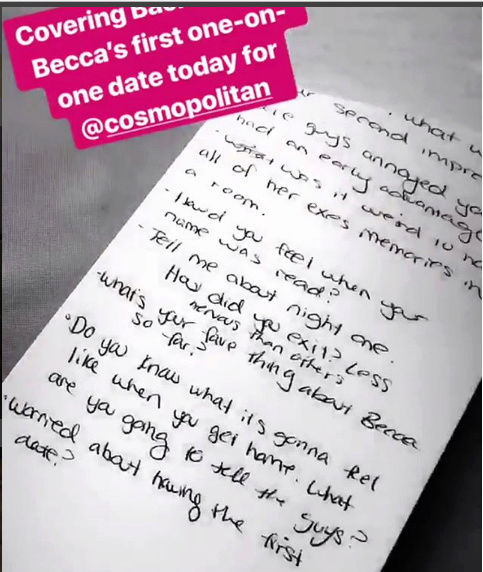 Covering Bac
Becca's first one-on-
one date today for
@cosmopolitan
second impre
guys annoyed yo
had an early advantage
was it weird to ha
all of her exes memories in
a room.
- How'd you feel when your
name was read?
- Tell me about night one.
How did you exit? Less
nervous than others
- what's your fave thing about Becca
so far?
• Do you know what it's gonna feel
like when you get home. What
are you going to tell the guys?
• Worried about having the first
date?